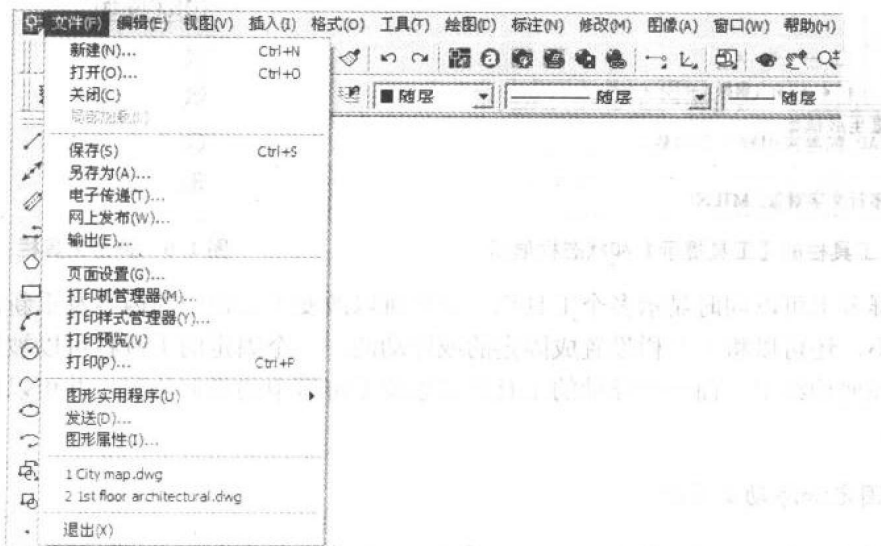 文件(F) 编辑(E) 视图(V) 插入(I) 格式(O) 工具(T) 绘图(D) 标注(N) 修改(M) 图像(A) 窗口(W) 帮助(H)
新建(N)... Ctrl+N
打开(O)... Ctrl+O
关闭(C)
随层 随层 随层
保存(S) Ctrl+S
另存为(A)...
电子传递(T)...
网上发布(W)...
输出(E)...
页面设置(G)...
打印机管理器(M)...
打印样式管理器(Y)...
打印预览(V)
打印(P)... Ctrl+P
图形实用程序(U)
发送(D)...
图形属性(I)...
1 City map.dwg
2 1st floor architectural.dwg
退出(X)